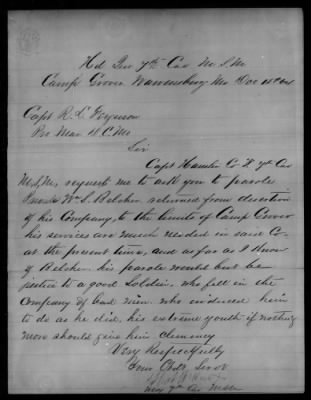 Hd Qrs 7th Cav M.S.M.
Camp Grover Warrensburg Mo Dec
Capt R. L. Ferguson
Pro Mar D.C. Mo
Sir
Capt Hamlin Co H 7th Cav
M.S.M., request me to ask you to parole
Private Wm S. Belcher returned from desertion
of his Company, to the limits of Camp Grover
his services are much needed in said Co.
at the present time, and as far as I know
of Belcher. his parole would but be
justice to a good Soldier. who fell in the
Company of bad men. who induced him
to do as he did, his extreme youth if nothing
more should gain him clemency
Very Respectfully
Your Obdt. Servt
7th Cav MSM